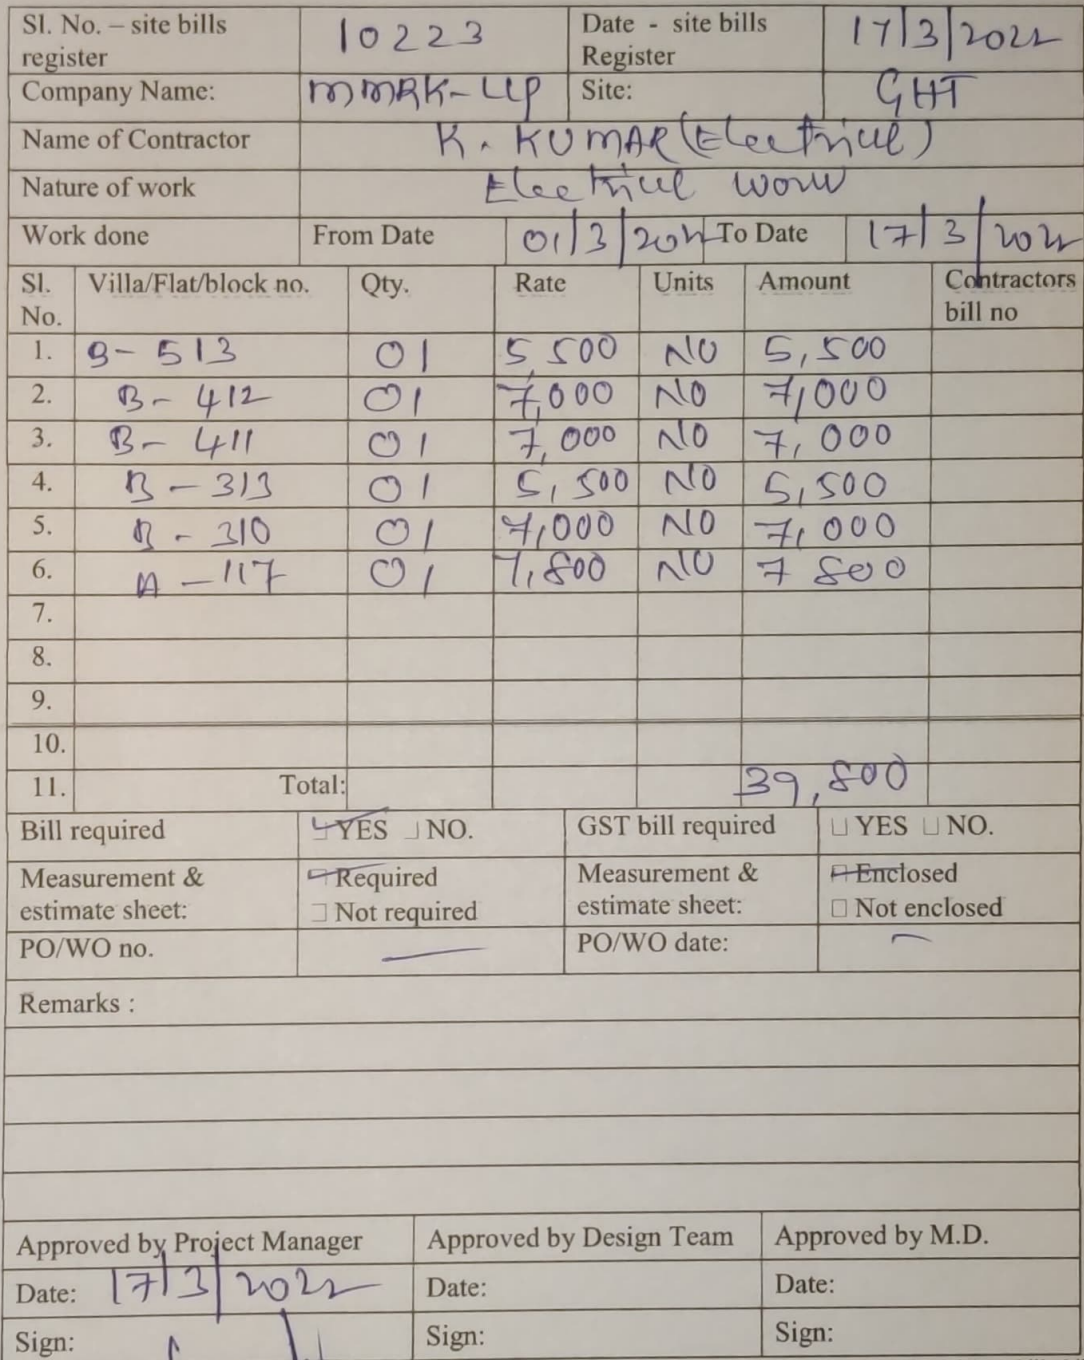 Sl. No. – site bills register 10223 Date - site bills Register 17/3/2022
Company Name: MMRK-LLP Site: GHT
Name of Contractor K. KUMAR (Electricul)
Nature of work Electricul work
Work done From Date 01/3/2022 To Date 17/3/2022
Sl. No. Villa/Flat/block no. Qty. Rate Units Amount Contractors bill no
1. B- 513 01 5,500 NO 5,500
2. B- 412 01 7,000 NO 7,000
3. B- 411 01 7,000 NO 7,000
4. B - 313 01 5,500 NO 5,500
5. B - 310 01 7,000 NO 7,000
6. A - 117 01 7,800 NO 7 800
7.
8.
9.
10.
11. Total: 39,800
Bill required YES NO. GST bill required YES NO.
Measurement & estimate sheet: Required Not required Measurement & estimate sheet: Enclosed Not enclosed
PO/WO no. — PO/WO date: —
Remarks :
Approved by Project Manager Approved by Design Team Approved by M.D.
Date: 17/3/2022 Date: Date:
Sign: Sign: Sign: